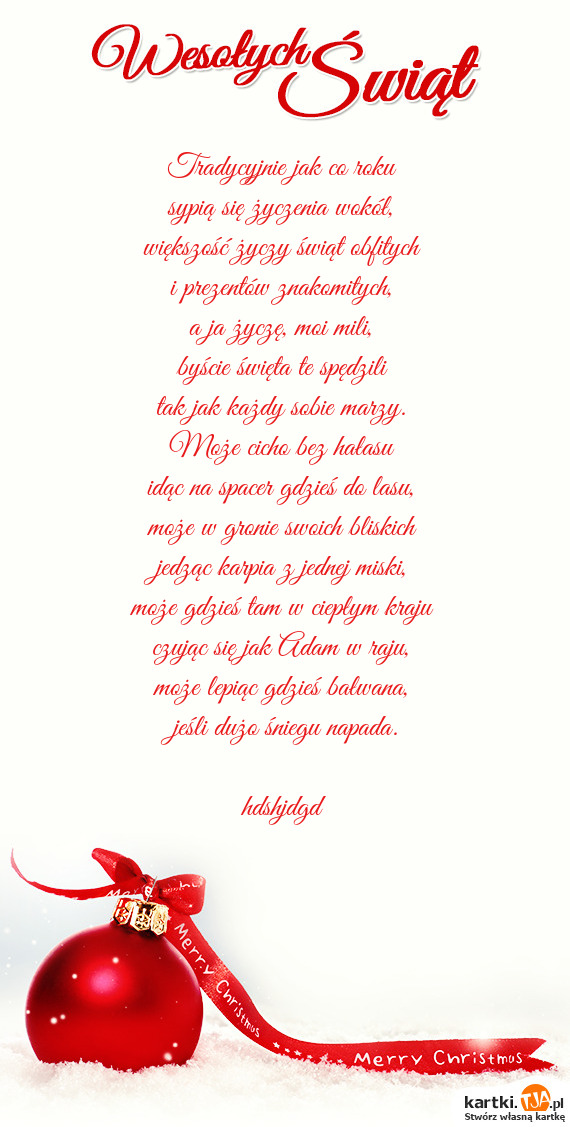 Wesołych Świąt
Tradycyjnie jak co roku
sypią się życzenia wokół,
większość życzy świąt obfitych
i prezentów znakomitych,
a ja życzę, moi mili,
byście święta te spędzili
tak jak każdy sobie marzy.
Może cicho bez hałasu
idąc na spacer gdzieś do lasu,
może w gronie swoich bliskich
jedząc karpia z jednej miski,
może gdzieś tam w ciepłym kraju
czując się jak Adam w raju,
może lepiąc gdzieś bałwana,
jeśli dużo śniegu napada.
hdshjdgd
Merry Christmas
Merry Christmas
kartki.TJA.pl
Stwórz własną kartkę